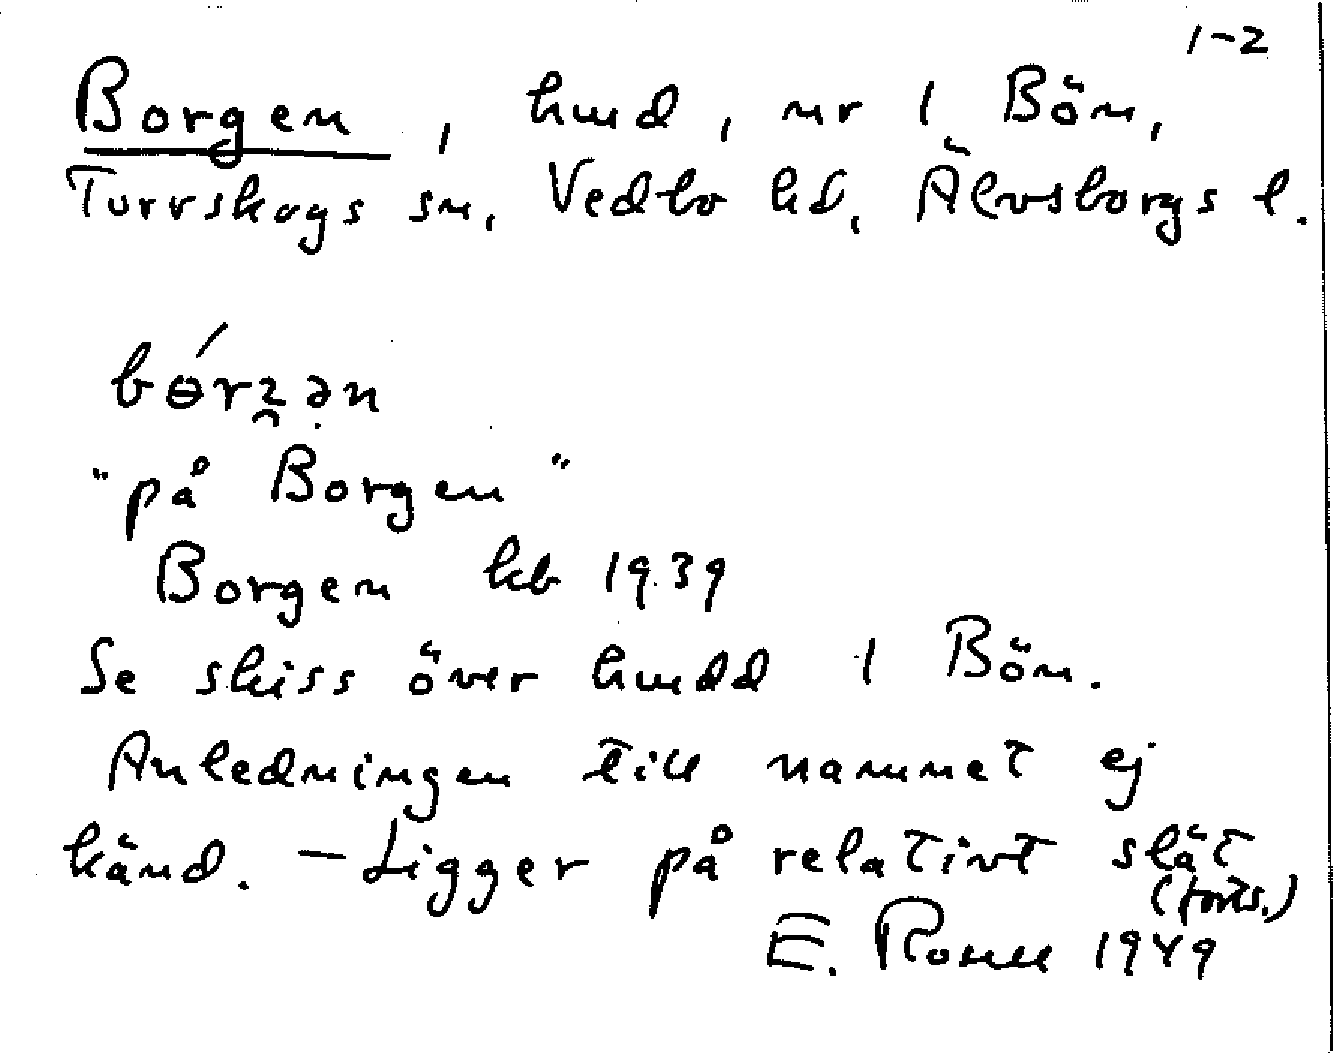 1-2
Borgen, hmd, nr 1 Bön,
Torrskogs sn, Vedbo hd, Älvsborgs l.
bɵ́rʒ̯ən
"på Borgen"
Borgen kb 1939
Se skiss över hmdd 1 Bön.
Anledningen till namnet ej
känd. - Ligger på relativt slät
(forts.)
E. Rosell 1949